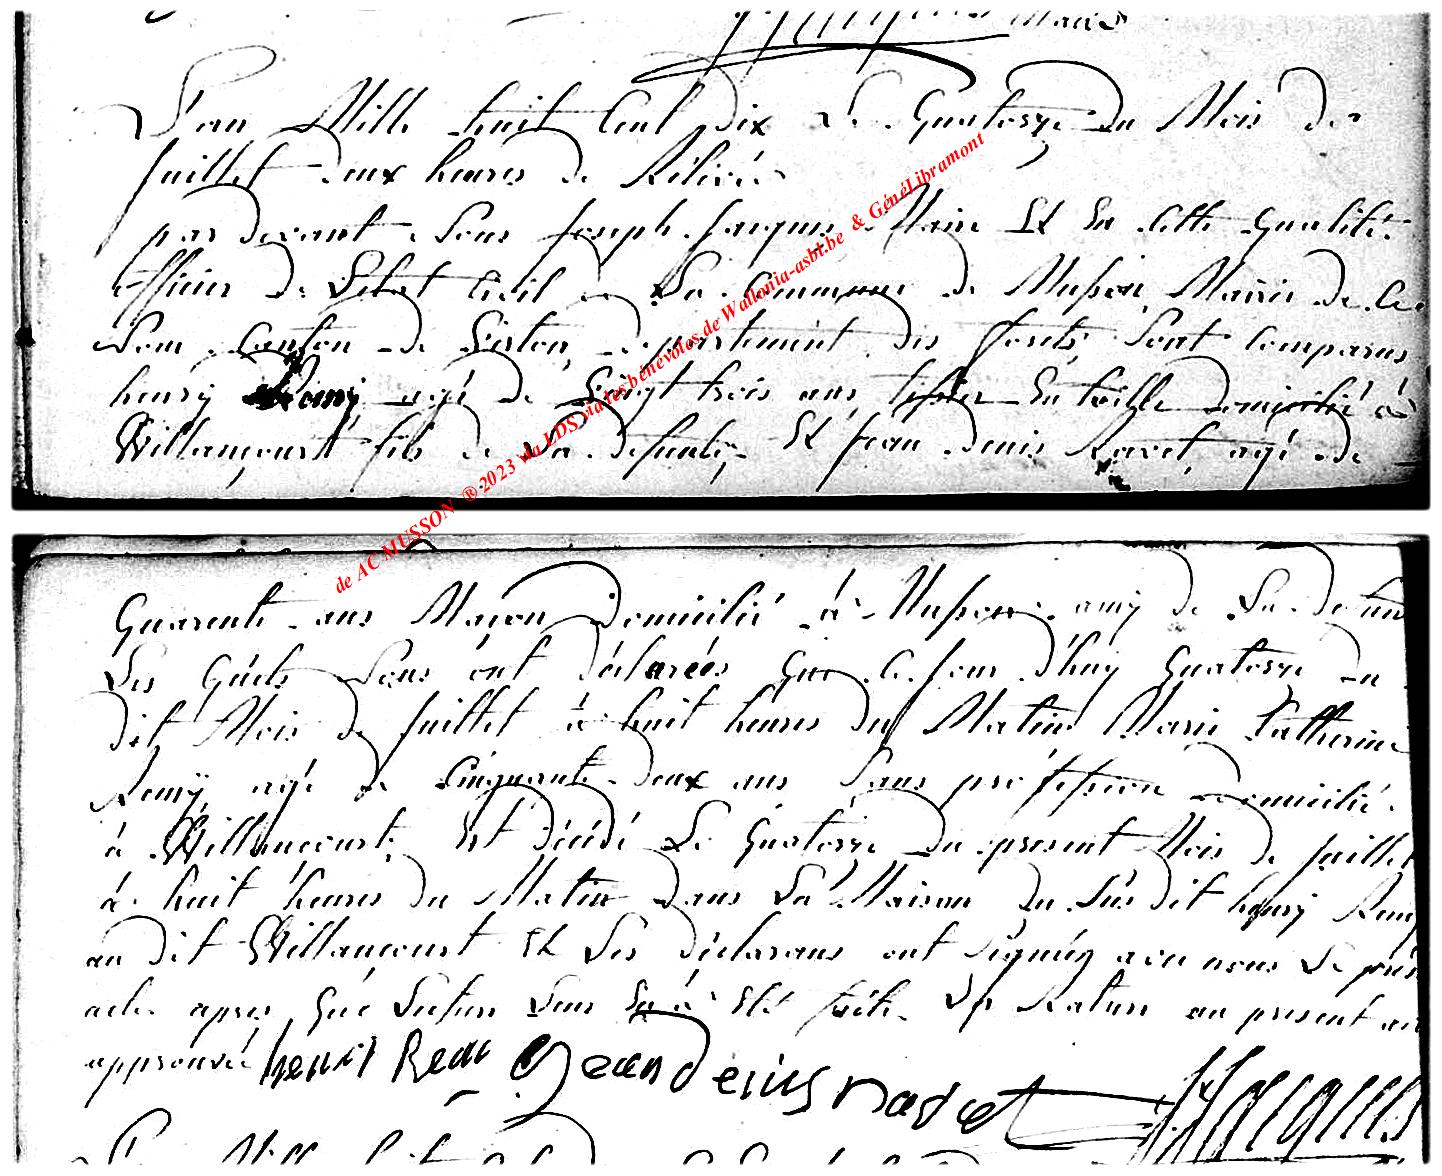 Maire
L'an Mille huit Cent dix Le Quatorze du Mois de
Juillet deux heures de Rélivée
par devant Nous Joseph Jacques Maire Et En Cette Qualité
officier de L'Etat Civil de La Commune de Musson, Mairie de Ce
Nom Canton de Virton, departement des forets Sont Comparus
henry Remy agé de Vingt trois ans tissier En toille domicilié à
Willancourt fils de La defunte, Et jean denis Navet, agé de
Quarente ans Maçon Domicilié à Musson amy de La defunte
Les Quels Nous ont déclarées Que Ce jour d'huy Quatorze du
dit Mois de Juillet à huit heures du Matin Marie Catherine
Remÿ agé de Cinquante deux ans Sans profession domicilié
à Willancourt, Est Décédé Le Quatorze du present Mois de juillet
à huit heures du Matin Dans La Maison du Susdit henry Remy
au dit Willancourt Et Les déclarans ont Signéz avec nous Le présent
acte apres Qué Lecture Leur En à Eté faite. La Rature au present acte
approuvée henri Remi Jean Denis navet JJacques
de AC MUSSON ® 2023 via LDS via les bénévoles de Wallonia-asbl.be & GénéLibramont